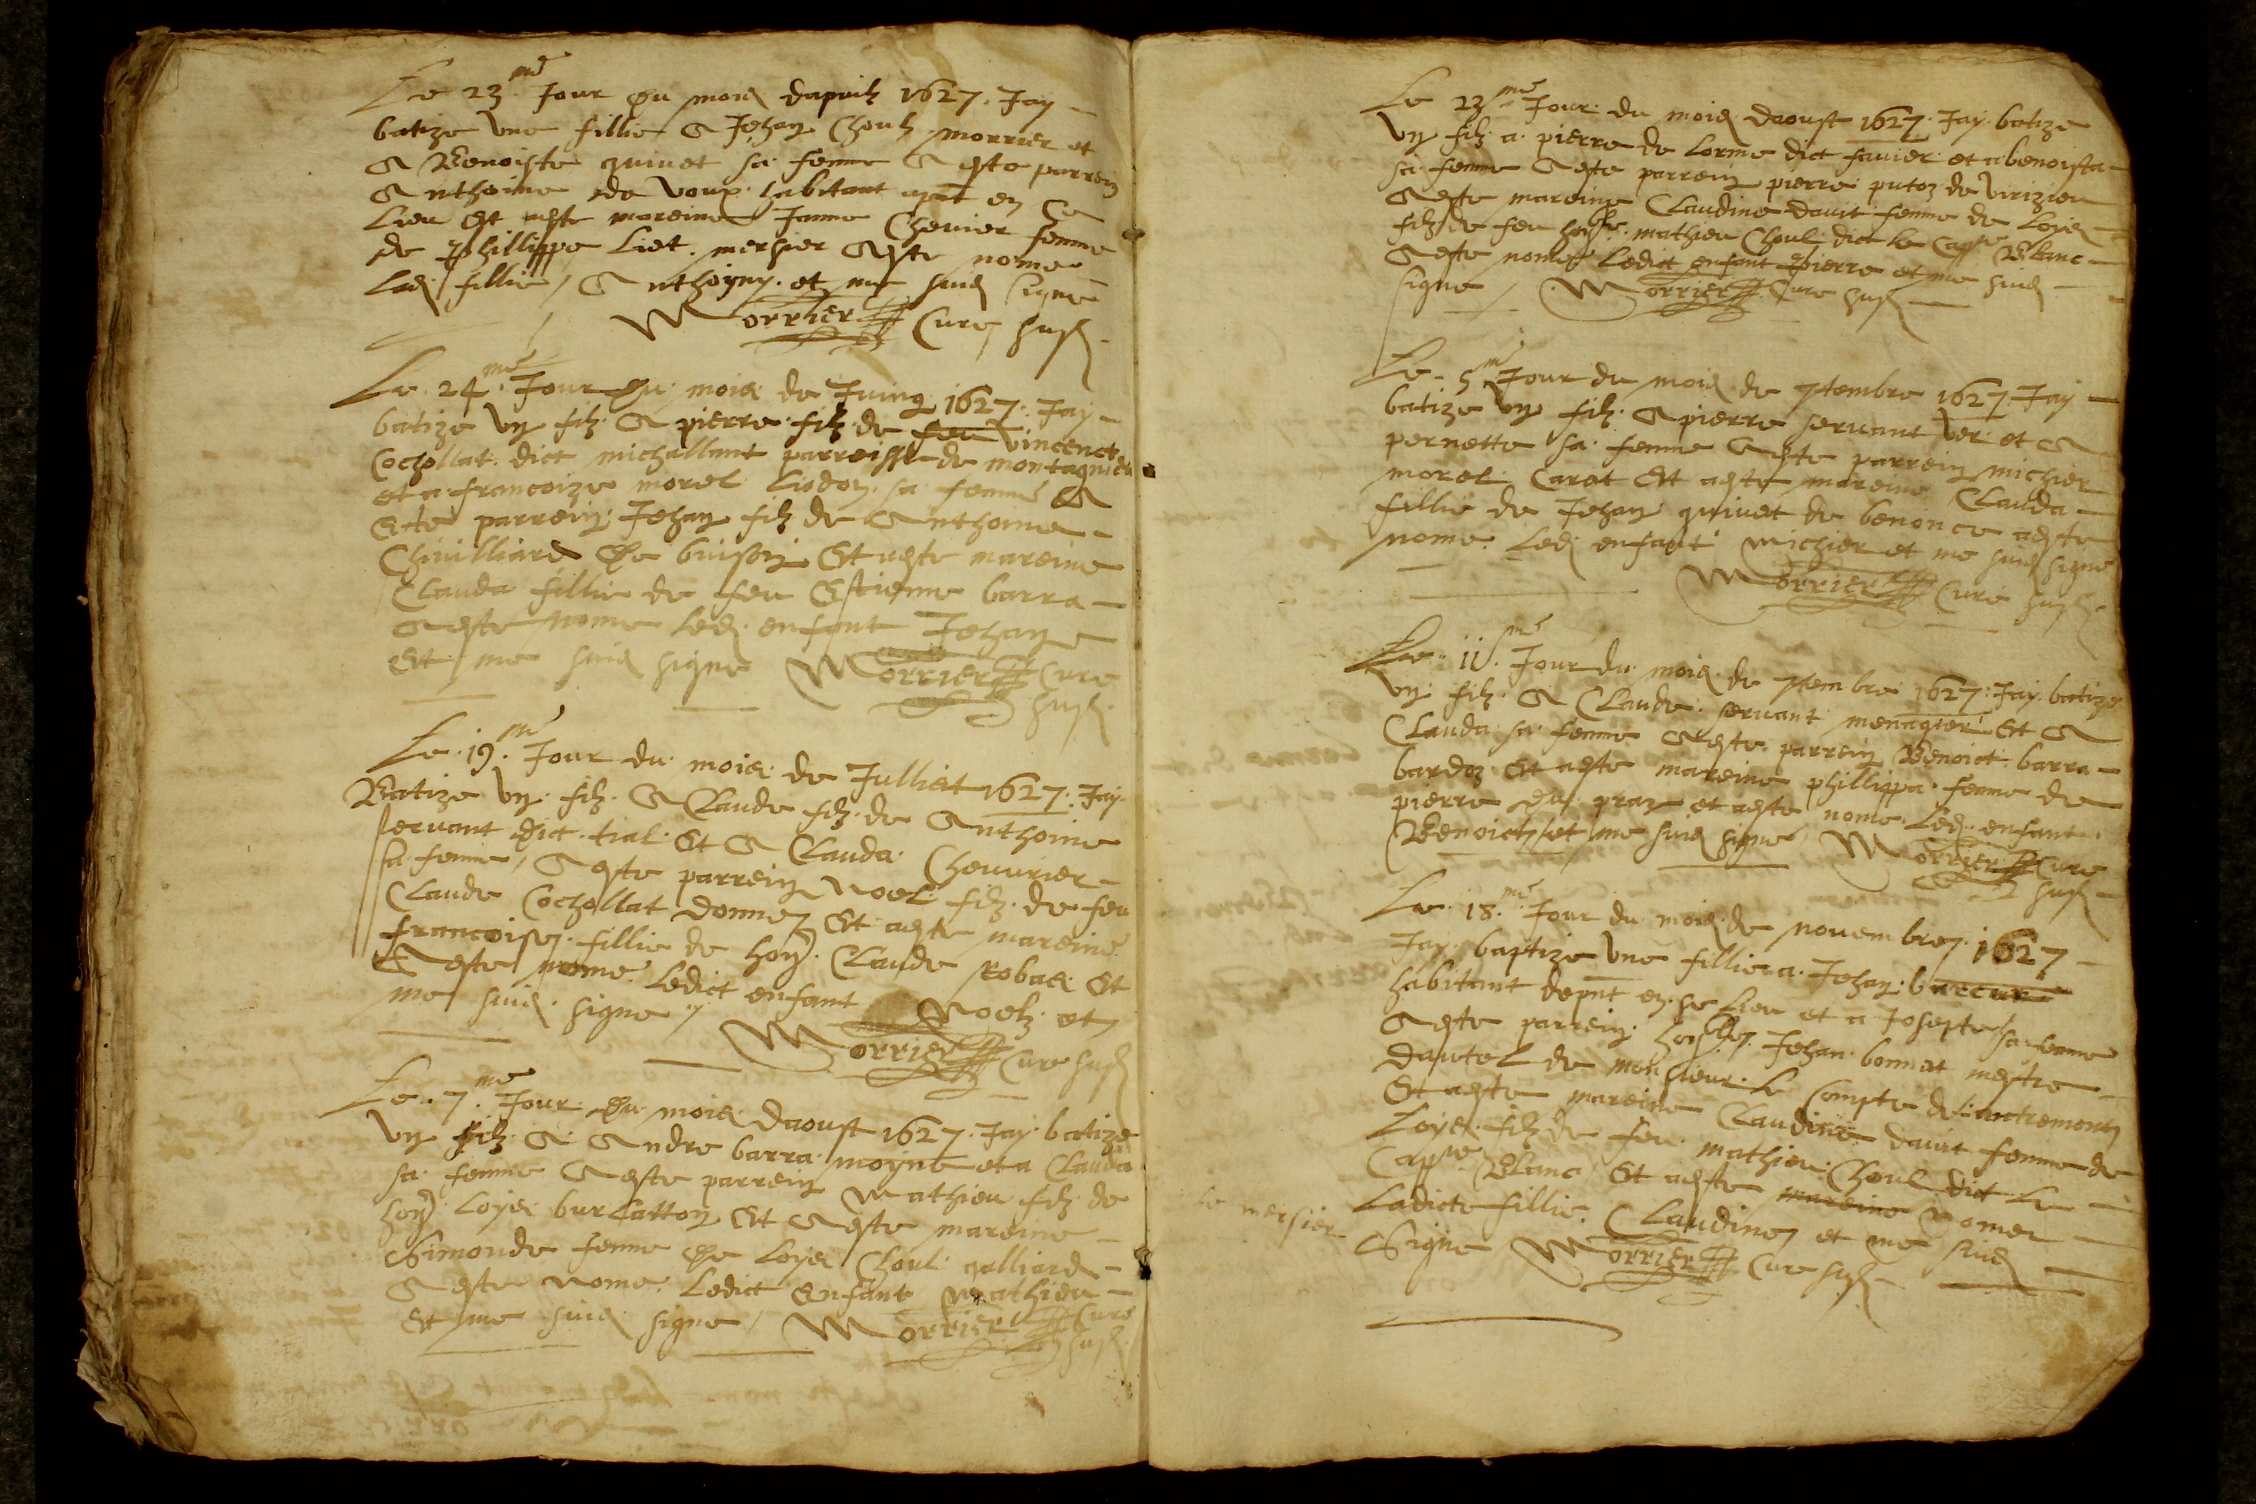 Le 23.me Jour du mois dapvril 1627. Jay
batize une fillie A Jehan Choul morrier et
A Benoiste quinet sa femme A este parrein
Anthoine de voux habitant apnt en ce
Lieu Et aeste mareine Janne Chevrier femme
de Phillippe Liet. mersier Aeste nome
Lad. fillie / Anthoyny. et me suis signe
Morrier Cure susd.
Le 24.me Jour du mois de Juing 1627. Jay
batize un filz A pierre filz de feu vincenct
Cochollat dict michallant parroisse de montagnieu
et a francoize morel sa femme A
Este parrein Jehan filz de Anthoine
Chivilliard De buisson Et aeste mareine
Clauda fillie de feu Estienne barra
Aeste nome Led. enfant Jehan
Et me suis signe Morrier Cure
susd.
Le .19.me Jour du mois de Julliet 1627. Jay
Batize un filz. A Claude filz. de Anthoine
servant dict. tial. Et A Clauda Chevvrier
sa femme, Aeste parrein Noel filz. de feu
Claude Cochollat donne Et aeste mareine
francoise. fillie de hon. Claude Robas Et
Aeste nome Ledict enfant Noelz et
me suis signe
Morrier Cure susd
Le .7.me Jour du mois daoust 1627. Jay batize
un filz. A Andre barra moyne et a Clauda
sa femme Aeste parrein Mathieu filz de
hon. Loyes burlatton Et Aeste mareine
Simonde femme De Loyes Choul galliard
Aeste nome Ledict Enfant Mathieu
Et me suis signe / Morrier Cure
susd.
Le 22.me Jour du mois daoust 1627. Jay batize
un filz a pierre de Lorme dict favier et a benoista
sa femme Aeste parrein pierre putoz de virizieu
Aeste mareine Claudine davit femme de Loyes
filz de feu mathieu Choul dict le Capne Blanc
Aeste nome Ledict enfant Pierre et me suis
signe / Morrier Cure susd
Le . 5.me Jour du mois de 7tembre 1627. Jay
batize un filz. A pierre servant ver et A
pernette sa femme Aeste parrein michier
morel Carat Et aeste mareine Clauda
fillie de Jehan quinet de benonce aeste
nome Led. enfant Michier et me suis signe
Morrier Cure susd.
Le . 11.me Jour du mois de 7tembre 1627. Jay batize
un filz. A Claude servant menagier Et A
Clauda sa femme Aeste parrein Benoict barra
bardoz Et aeste mareine phillippa femme de
pierre du pray et aeste nome Led. enfant
Benoict / et me suis signe Morrier Cure
susd
Le . 18.me Jour du mois de novembre 1627
Jay baptize une fillie a Jehan
habitant depnt en se Lieu et a Josepte sa femme
Aeste parrein Jehan bonnat mestre
dautel de monsieur Le Compte de
Et aeste mareine Claudine davit femme de
Loyes filz de feu mathieu Choul dict Le
Capne Blanc Et aeste mareine nomer
Ladicte fillie Claudine et me suis
Signe Morrier Cure susd
Le mersier